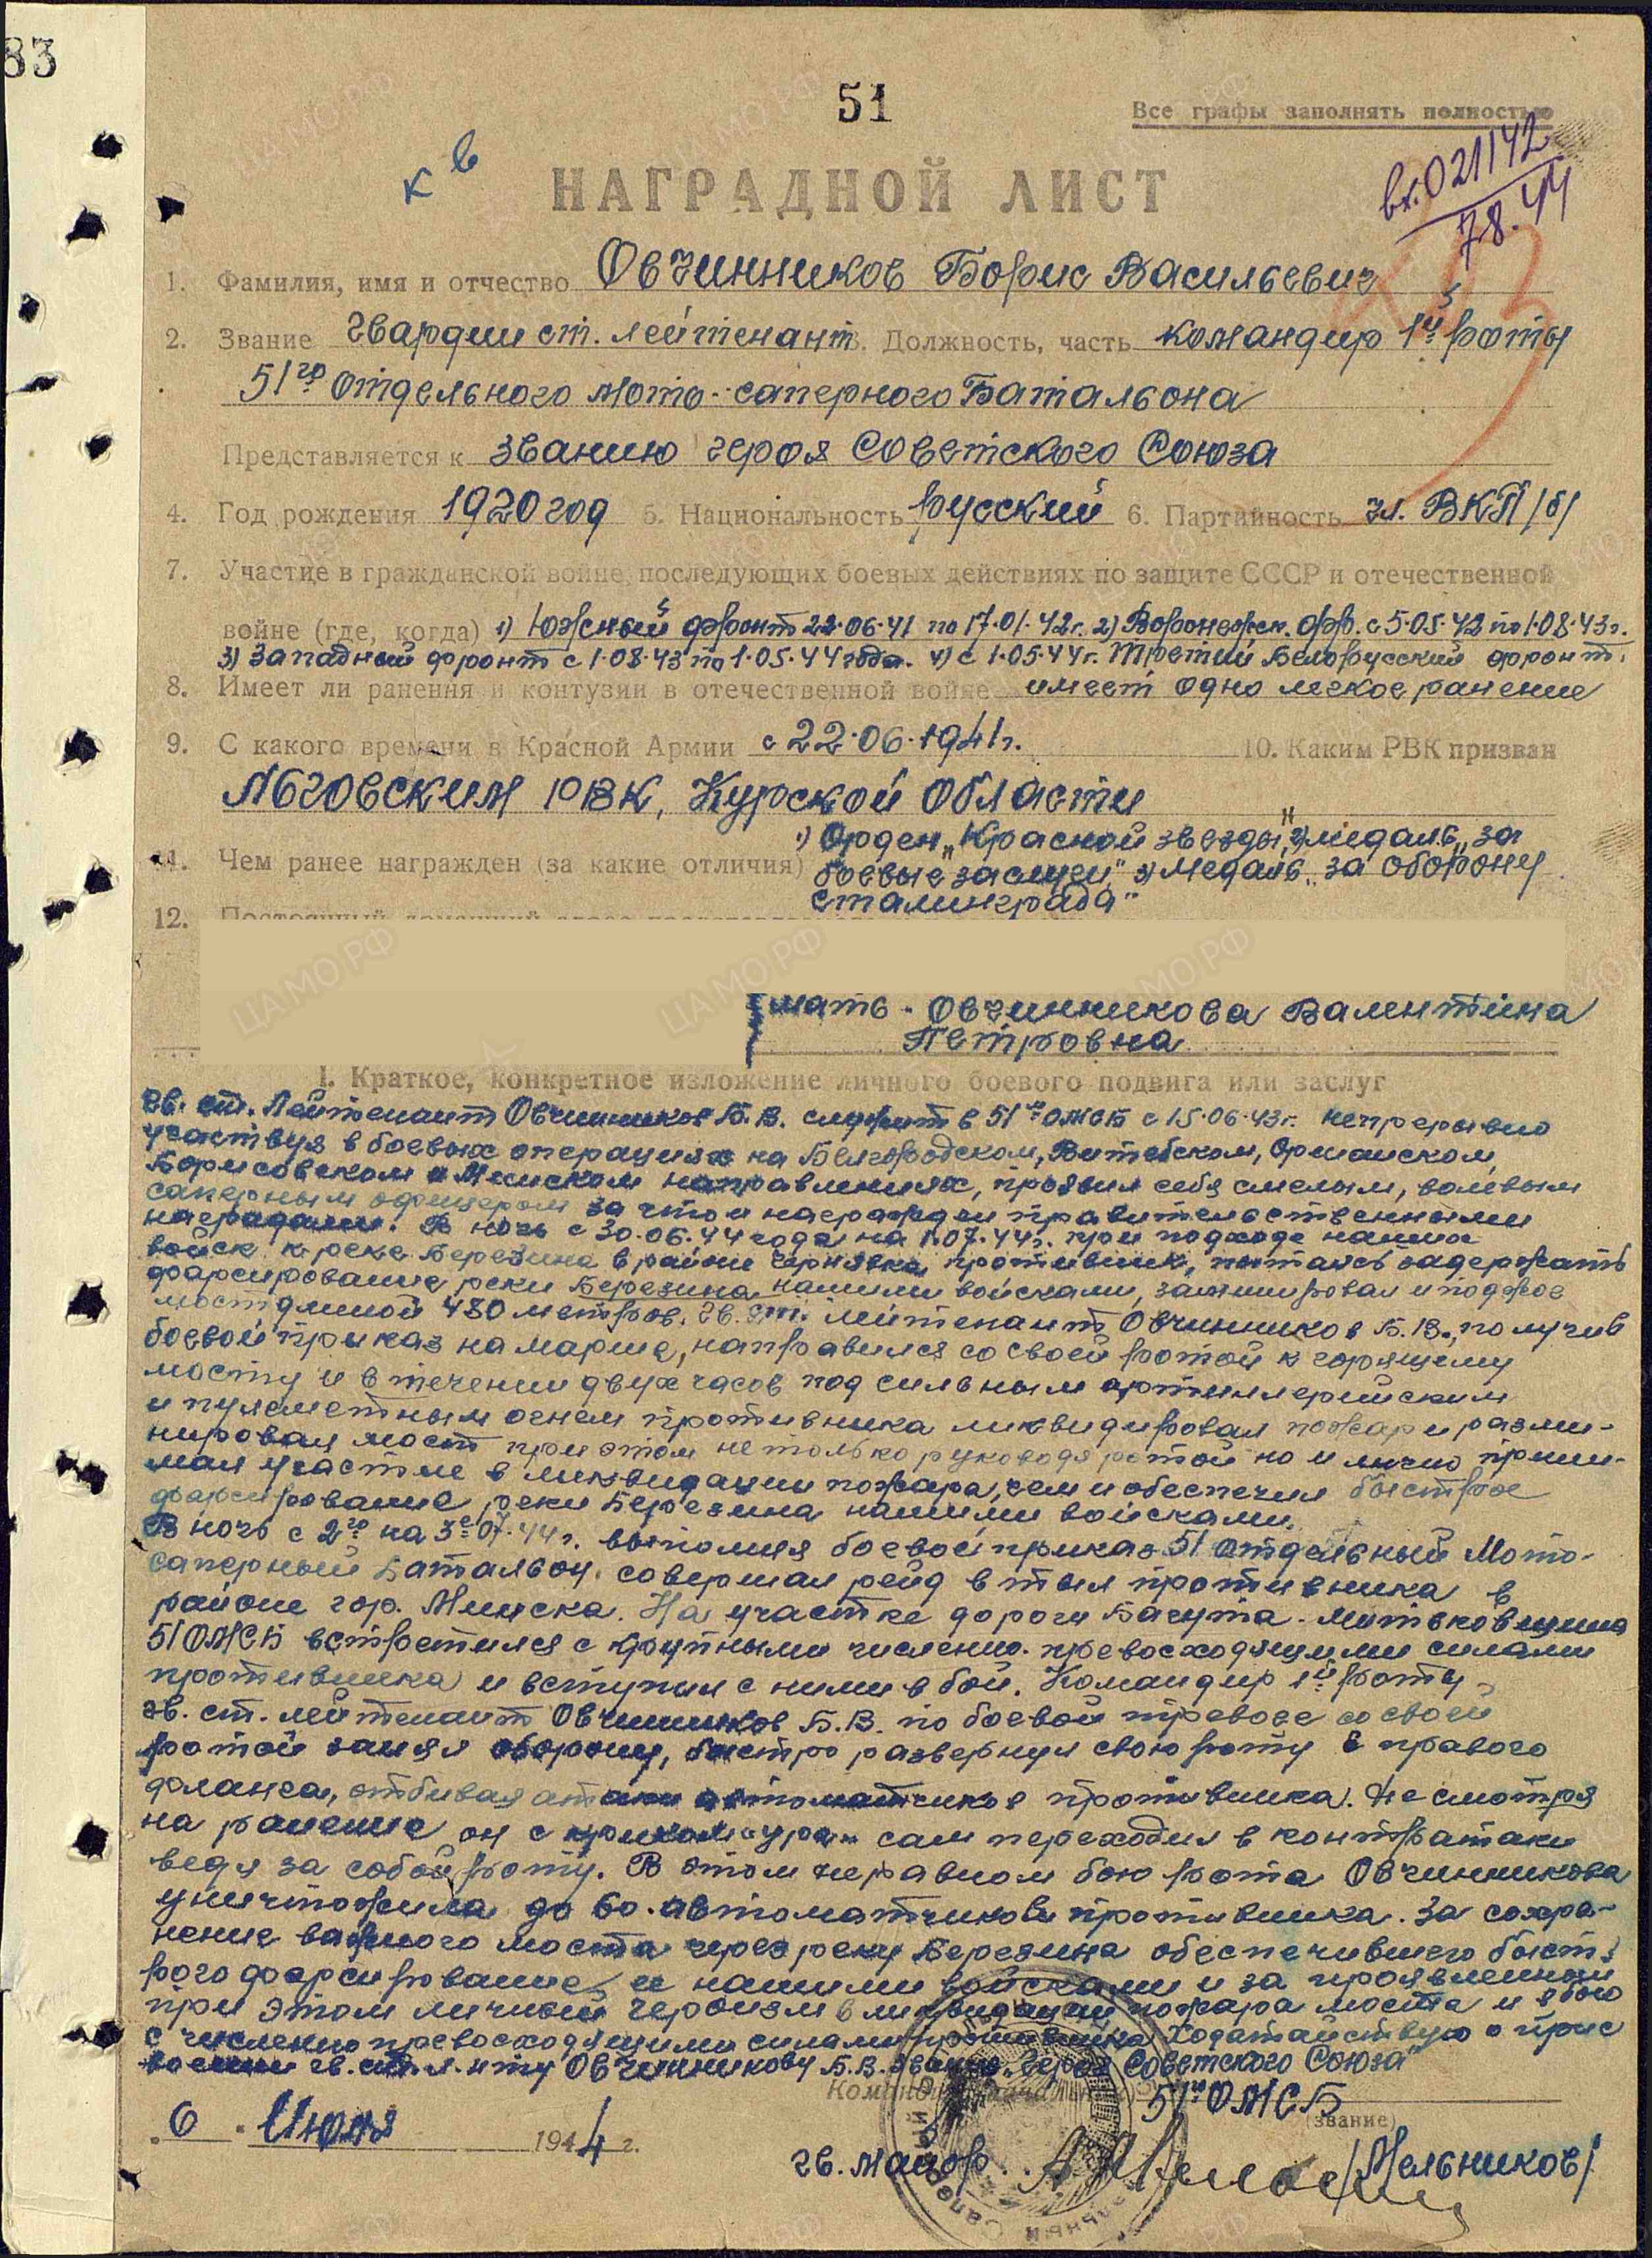 83
51
Все графы заполнять полностью
кв
вх. 021142
7.8.44
НАГРАДНОЙ ЛИСТ
1. Фамилия, имя и отчество Овчинников Борис Васильевич
2. Звание гвардии ст. лейтенант 3. Должность, часть командир 1й роты
51го отдельного мото-саперного Батальона
Представляется к званию героя Советского Союза
4. Год рождения 1920 год 5. Национальность русский 6. Партийность чл. ВКП/б/
7. Участие в гражданской войне, последующих боевых действиях по защите СССР и отечественной
войне (где, когда) 1) Южный фронт 22.06.41 по 17.01.42г. 2) Воронежск. фр. с 5.05.42 по 1.08.43г.
3) Западный фронт с 1.08.43 по 1.05.44 года. 4) с 1.05.44г. Третий Белорусский фронт.
8. Имеет ли ранения и контузии в отечественной войне имеет одно легкое ранение
9. С какого времени в Красной Армии с 22.06.1941г. 10. Каким РВК призван
Льговским РВК, Курской области
1) Орден „Красной звезды", 2) медаль „за
11. Чем ранее награжден (за какие отличия) боевые заслуги" 3) Медаль „за оборону
Сталинграда"
12. Постоянный домашний адрес
мать - Овчинникова Валентина
Петровна
I. Краткое, конкретное изложение личного боевого подвига или заслуг
Гв. ст. Лейтенант Овчинников Б.В. служит в 51м ОМСБ с 15.06.43г. непрерывно
участвуя в боевых операциях на Белгородском, Витебском, Оршанском,
Борисовском и Минском направлениях, проявил себя смелым, волевым
саперным офицером за что и награжден правительственными
наградами. В ночь с 30.06.44 года на 1.07.44г. при подходе наших
войск к реке Березина в районе Чернявка противник, пытаясь задержать
форсирование реки Березина нашими войсками, заминировал и поджог
мост длиной 480 метров. Гв. ст. лейтенант Овчинников Б.В., получив
боевой приказ на марше, направился со своей ротой к горящему
мосту и в течении двух часов под сильным артиллерийским
и пулеметным огнем противника ликвидировал пожар и разми-
нировал мост при этом не только руководя ротой но и лично прини-
мал участие в ликвидации пожара, чем и обеспечил быстрое
форсирование реки Березина нашими войсками.
В ночь с 2го на 3е.07.44г. выполняя боевой приказ 51 отдельный Мото-
саперный Батальон совершал рейд в тыл противника в
районе гор. Минска. На участке дороги Багута - Митьковщина
51 ОМСБ встретился с крупными численно превосходящими силами
противника и вступил с ними в бой. Командир 1й роты
гв. ст. лейтенант Овчинников Б.В. по боевой тревоге со своей
ротой занял оборону, быстро развернул свою роту с правого
фланга, отбивая атаки автоматчиков противника. Не смотря
на ранение он с криком „ура" сам переходил в контратаки
ведя за собой роту. В этом неравном бою рота Овчинникова
уничтожила до 60 автоматчиков противника. За сохра-
нение важного моста через реку Березина обеспечившего быст-
рого форсирование её нашими войсками и за проявленный
при этом личный героизм в ликвидации пожара моста и в бою
с численно превосходящими силами противника ходатайствую о прис
воении гв. ст. л-нту Овчинникову Б.В. звание „Героя Советского Союза"
Командир 51го ОМСБ
(звание)
„6" Июля 1944 г.
гв. майор /Мельников/